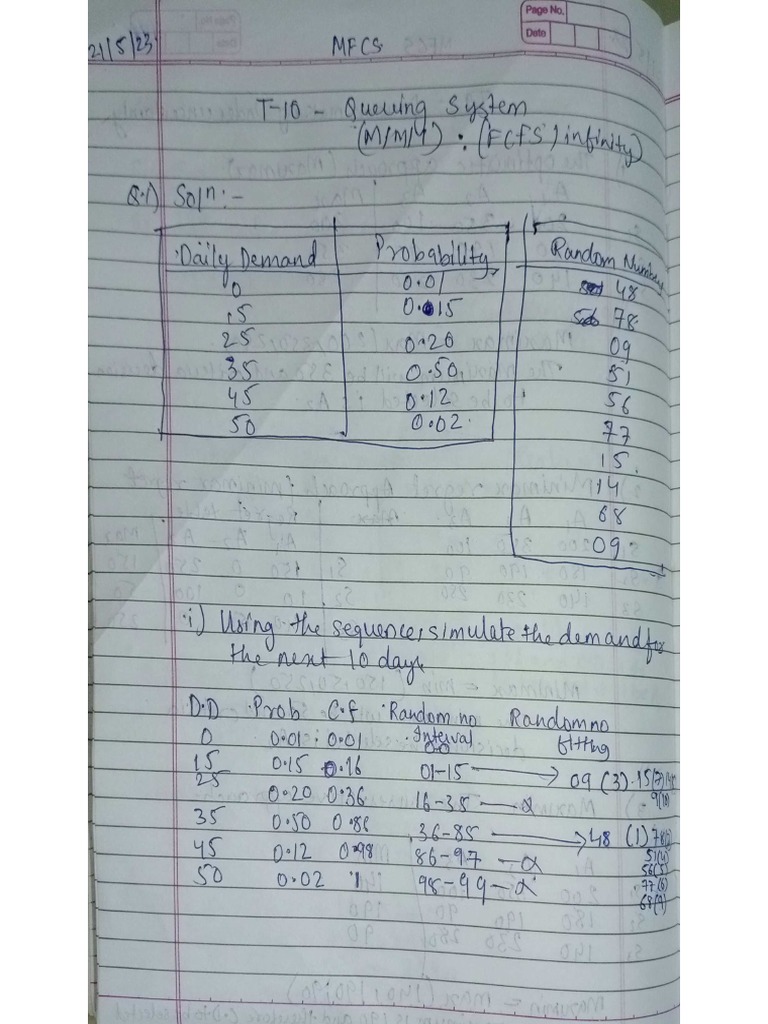 Page No.
Date
21/5/23
MFCS
T-10 - Queuing System
(M/M/1) : (FCFS) infinity)
Q.1) Solⁿ:-
Daily Demand Probability Random Number
0 0.01 48
15 0.015 78
25 0.20 09
35 0.50 51
45 0.12 56
50 0.02 77
15
14
68
09
i) Using the sequence, simulate the demand for
the next 10 days
D.D Prob C.f Random no Interval Random no fitting
0 0.01 0.01 00
15 0.15 0.16 01-15 → 09 (3) 15(7) 14(8) 9(10)
25 0.20 0.36 16-35 - α
35 0.50 0.86 36-85 → 48 (1) 78(2) 51(4) 56(5) 77(6) 68(9)
45 0.12 0.98 86-97 - α
50 0.02 1 98-99 - α